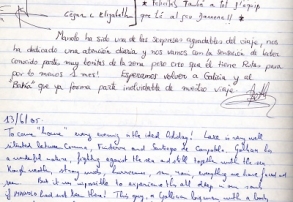 * Felicitats també a tot l'equip
César & Elizabeth
Manolo ha sido una de las sorpresas agradables del viaje, nos
ha dedicado una atención diaria y nos vamos con la sensación de haber
conocido parte muy bonita de la zona, pero creo que él tiene Rutas para
por lo menos 1 mes! Esperamos volver a Galicia y al
que ya forma parte inolvidable de nuestro viaje.
13/6/05.
To come "home" every evening is the ideal holiday! Laxe is very well
situated between Coruña, Finisterre and Santiago de Compostela. Galicia has
a wonderful nature, fighting against the sea and still together with the sea.
Rough weather, strong winds, hurricanes, sun, rain, everything we have found
But it was impossible to experience this all deep in our souls
if MANOLO had not been there! This guy, a Galician